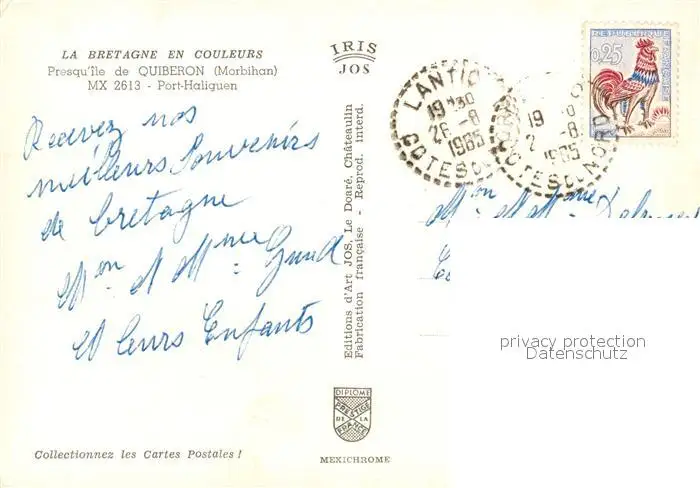 LA BRETAGNE EN COULEURS
Presqu'île de QUIBERON (Morbihan)
MX 2613 - Port-Haliguen
IRIS
JOS
Recevez nos
meilleurs souvenirs
de bretagne
Mon et Mme
et leurs Enfants
Editions d'Art JOS, Le Doaré, Châteaulin
Fabrication française - Reprod. interd.
LANTIC
19H30
26 -8
1965
COTES DU NORD
19
2 -8
1965
COTES DU NORD
REPUBLIQUE FRANÇAISE
0,25
Mon et Mme
privacy protection
Datenschutz
DIPLOME
PRESTIGE
DE LA
FRANCE
MEXICHROME
Collectionnez les Cartes Postales !